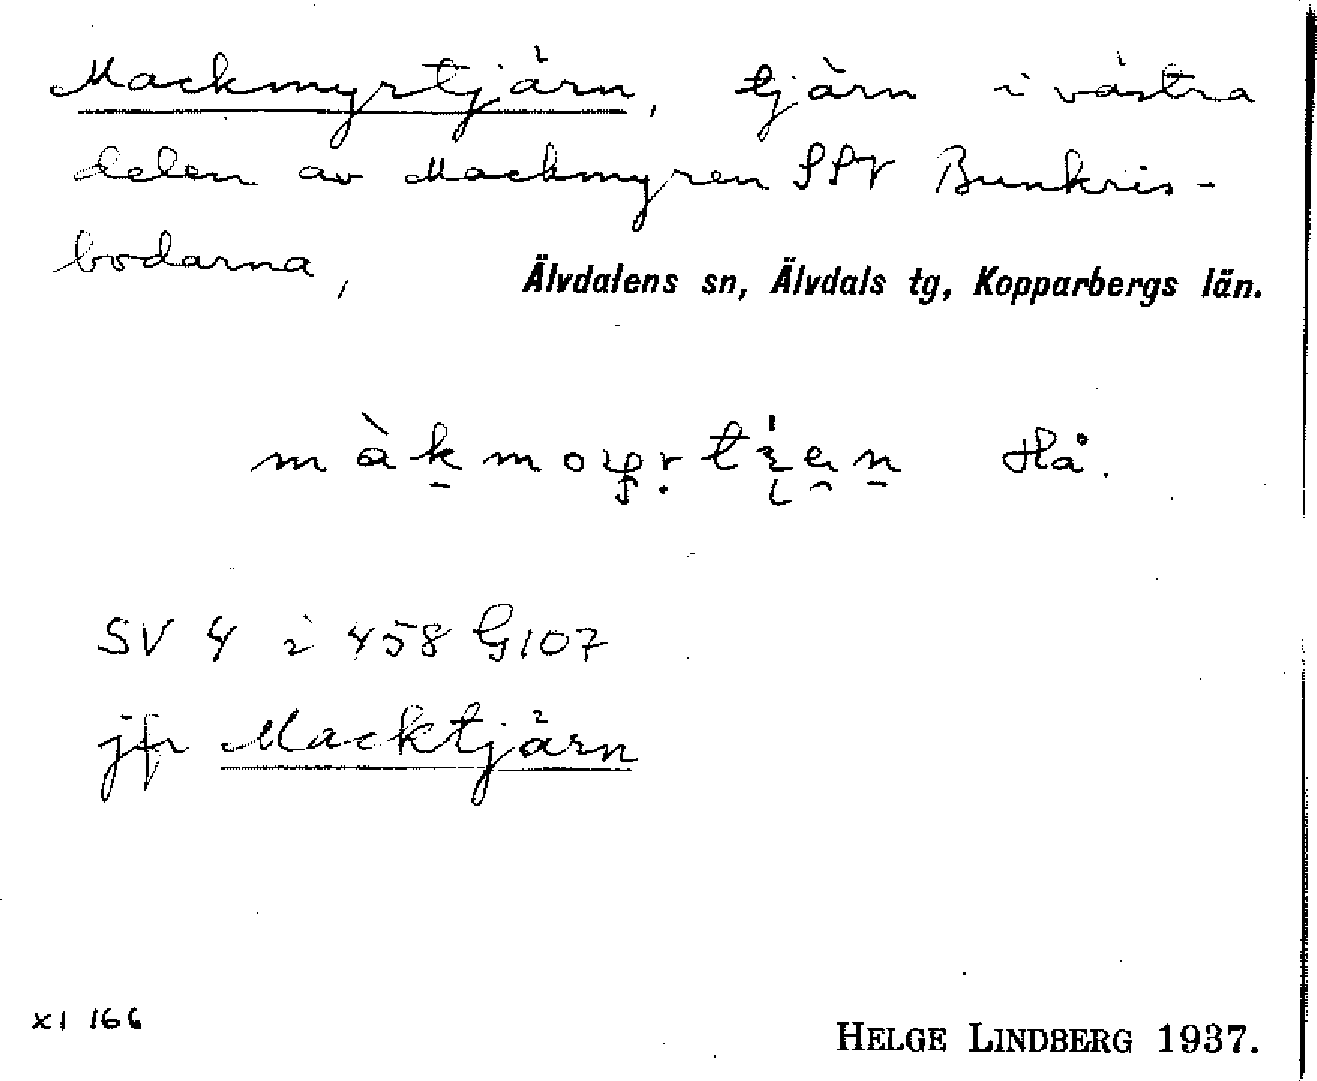 Mackmyrtjärn, tjärn i västra
delen av Mackmyren SSV Bunkris-
bodarna,
Älvdalens sn, Älvdals tg, Kopparbergs län.
Hå.
SV 4 i 458 G107
jfr Macktjärn
XI 166
HELGE LINDBERG 1937.